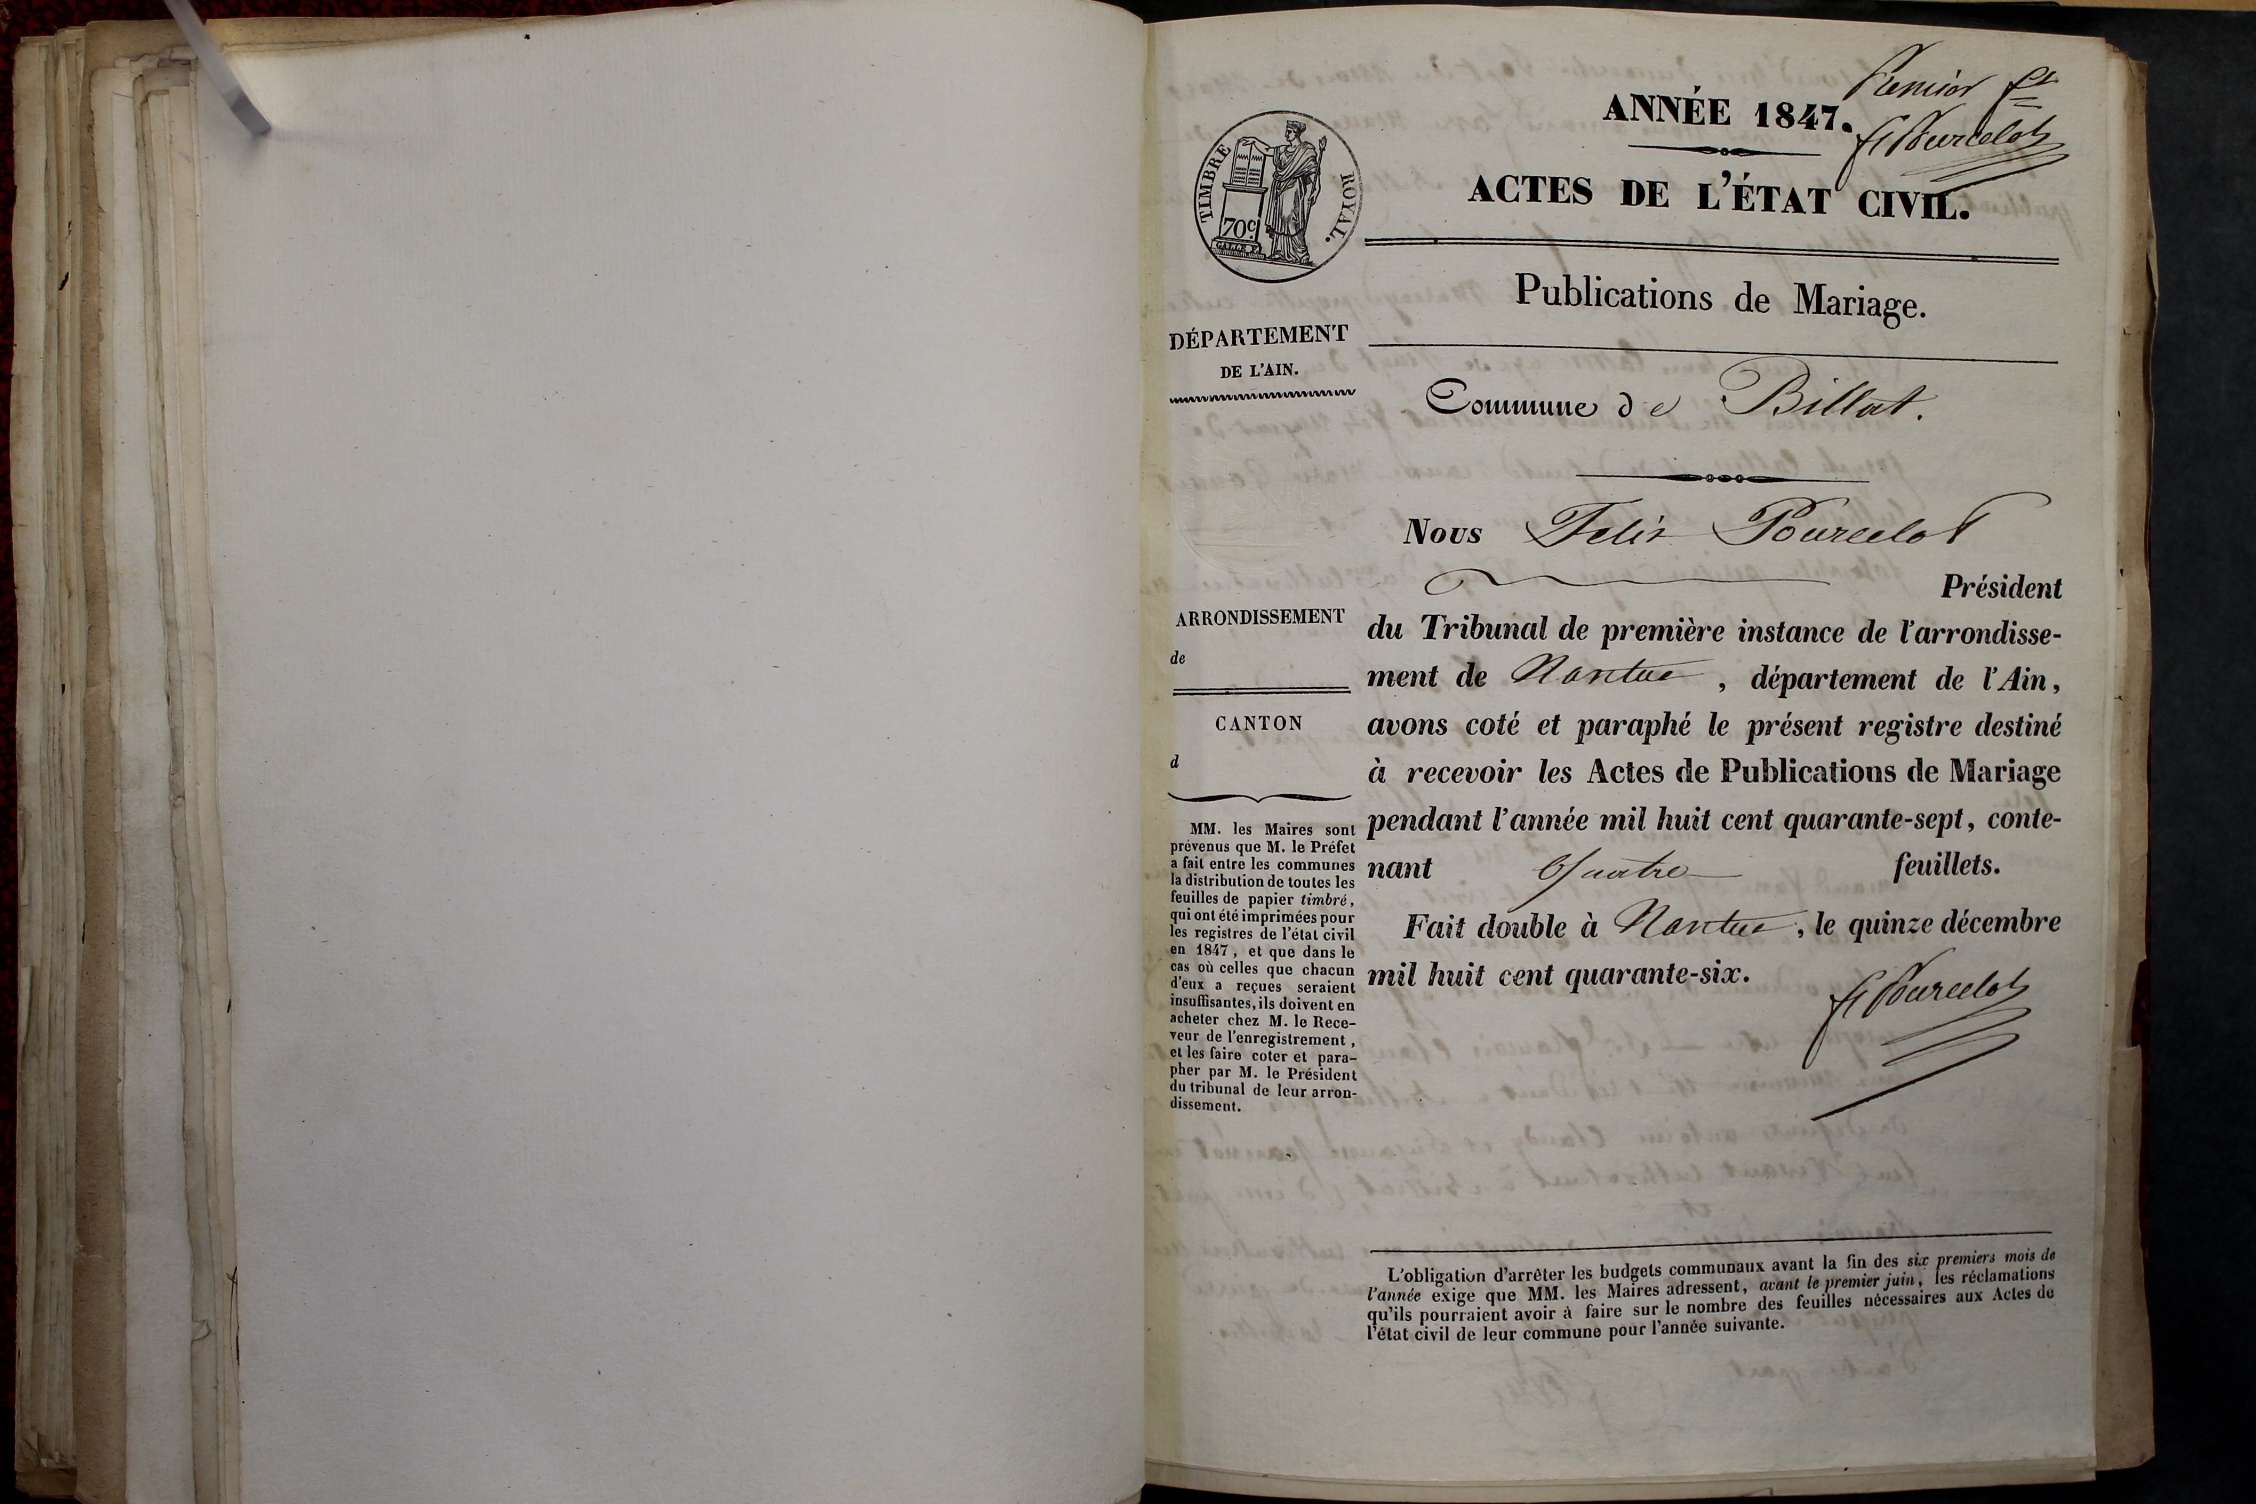 Premier ft
F Pourcelot
ANNÉE 1847.
ACTES DE L'ÉTAT CIVIL.
TIMBRE ROYAL.
70c.
Publications de Mariage.
DÉPARTEMENT
DE L'AIN.
Commune de Billiat.
Nous Felix Pourcelot
Président
du Tribunal de première instance de l'arrondisse-
ment de Nantua, département de l'Ain,
avons coté et paraphé le présent registre destiné
à recevoir les Actes de Publications de Mariage
pendant l'année mil huit cent quarante-sept, conte-
nant Quatre feuillets.
Fait double à Nantua, le quinze décembre
mil huit cent quarante-six.
F Pourcelot
ARRONDISSEMENT
de
CANTON
d
MM. les Maires sont
prévenus que M. le Préfet
a fait entre les communes
la distribution de toutes les
feuilles de papier timbré,
qui ont été imprimées pour
les registres de l'état civil
en 1847, et que dans le
cas où celles que chacun
d'eux a reçues seraient
insuffisantes, ils doivent en
acheter chez M. le Rece-
veur de l'enregistrement,
et les faire coter et para-
pher par M. le Président
du tribunal de leur arron-
dissement.
L'obligation d'arrêter les budgets communaux avant la fin des six premiers mois de
l'année exige que MM. les Maires adressent, avant le premier juin, les réclamations
qu'ils pourraient avoir à faire sur le nombre des feuilles nécessaires aux Actes de
l'état civil de leur commune pour l'année suivante.